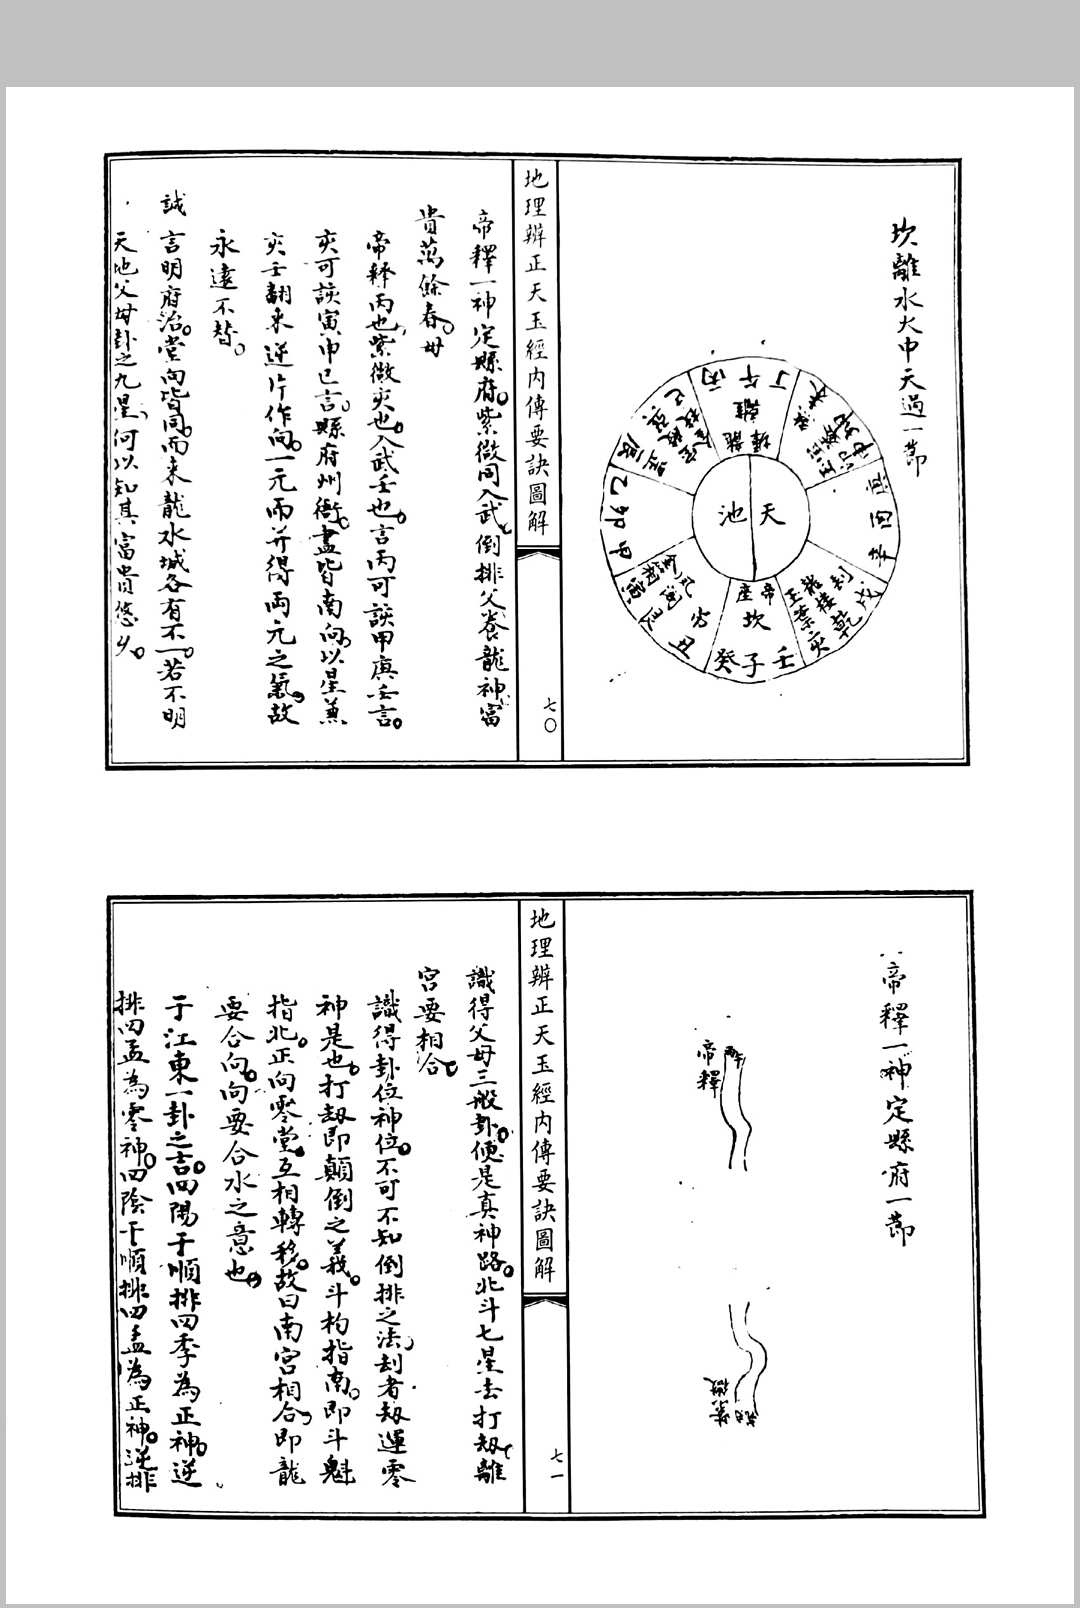 坎離水火中天過一節
天池
離
丁午丙
巽
辰
乙
卯
甲
寅
艮
丑
帝座
坎
癸子壬
亥
乾
戌
辛
酉
庚
地理辨正天玉經內傳要訣圖解
七〇
帝釋一神定縣府。紫微同八武。倒排父養龍神富
貴萬餘春。毋
帝釋丙也、紫微亥也。八武壬也。言丙可該甲庚壬言。
亥可該寅申巳言。縣府州衙。盡皆南向。以星兼
亥壬翻來逆片作向。一元而并得兩元之氣。故
永遠不替。
誠言明府治。堂向皆同。而來龍水城各有不一。若不明
天地父母卦之九星、何以知其富貴悠久。
帝釋一神定縣府一節
帝釋
紫微
地理辨正天玉經內傳要訣圖解
七一
識得父母三般卦。便是真神路。北斗七星去打刼。離
宮要相合。
識得卦位神位。不可不知倒排之法、刦者刼運零
神是也。打刼即顛倒之義。斗杓指南。即斗魁
指北。正向零堂。互相轉移。故曰南宮相合、即龍
要合向。向要合水之意也。
于江東一卦之吉。四陽干順排四季為正神。逆
排四孟為零神。四陰干順排四孟為正神。逆排